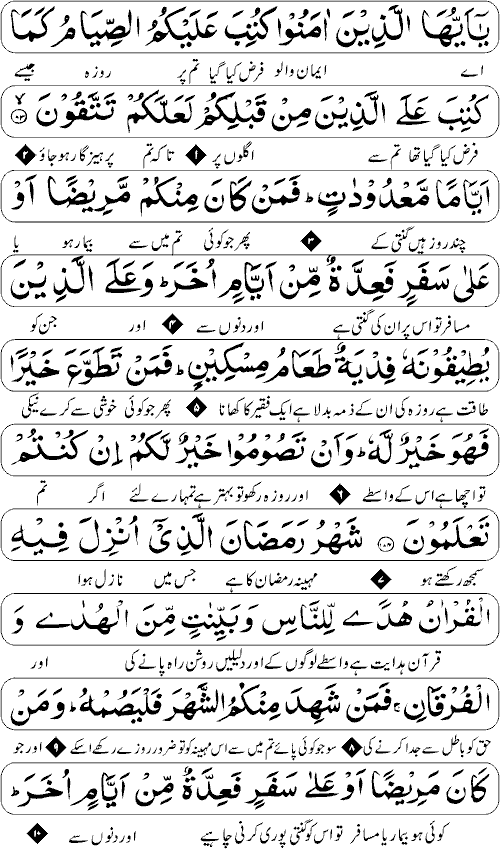 يٰٓاَيُّهَا الَّذِيْنَ اٰمَنُوْا كُتِبَ عَلَيْكُمُ الصِّيَامُ كَمَا
اے ایمان والو فرض کیا گیا تم پر روزہ جیسے
كُتِبَ عَلَى الَّذِيْنَ مِنْ قَبْلِكُمْ لَعَلَّكُمْ تَتَّقُوْنَ ۙ۱۸۳
فرض کیا گیا تھا تم سے اگلوں پر ۱ تاکہ تم پرہیزگار ہو جاؤ ۲
اَيَّامًا مَّعْدُوْدٰتٍ ؕ فَمَنْ كَانَ مِنْكُمْ مَّرِيْضًا اَوْ
چند روز ہیں گنتی کے ۳ پھر جو کوئی تم میں سے بیمار ہو یا
عَلٰى سَفَرٍ فَعِدَّةٌ مِّنْ اَيَّامٍ اُخَرَ ؕ وَعَلَى الَّذِيْنَ
مسافر تو اس پر ان کی گنتی ہے اور دنوں سے ۴ اور جن کو
يُطِيْقُوْنَهٗ فِدْيَةٌ طَعَامُ مِسْكِيْنٍ ؕ فَمَنْ تَطَوَّعَ خَيْرًا
طاقت ہے روزہ کی ان کے ذمہ بدلا ہے ایک فقیر کا کھانا ۵ پھر جو کوئی خوشی سے کرے نیکی
فَهُوَ خَيْرٌ لَّهٗ ؕ وَاَنْ تَصُوْمُوْا خَيْرٌ لَّكُمْ اِنْ كُنْتُمْ
تو اچھا ہے اس کے واسطے ۶ اور روزہ رکھو تو بہتر ہے تمہارے لئے اگر تم
تَعْلَمُوْنَ ۱۸۴ شَهْرُ رَمَضَانَ الَّذِيْٓ اُنْزِلَ فِيْهِ
سمجھ رکھتے ہو ۷ مہینہ رمضان کا ہے جس میں نازل ہوا
الْقُرْاٰنُ هُدًى لِّلنَّاسِ وَبَيِّنٰتٍ مِّنَ الْهُدٰى وَ
قرآن ہدایت ہے واسطے لوگوں کے اور دلیلیں روشن راہ پانے کی اور
الْفُرْقَانِ ۚ فَمَنْ شَهِدَ مِنْكُمُ الشَّهْرَ فَلْيَصُمْهُ ؕ وَمَنْ
حق کو باطل سے جدا کرنے کی ۸ سو جو کوئی پائے تم میں سے اس مہینہ کو تو ضرور روزے رکھے اسکے ۹ اور جو
كَانَ مَرِيْضًا اَوْ عَلٰى سَفَرٍ فَعِدَّةٌ مِّنْ اَيَّامٍ اُخَرَ ؕ
کوئی ہو بیمار یا مسافر تو اس کو گنتی پوری کرنی چاہیے اور دنوں سے ۱۰